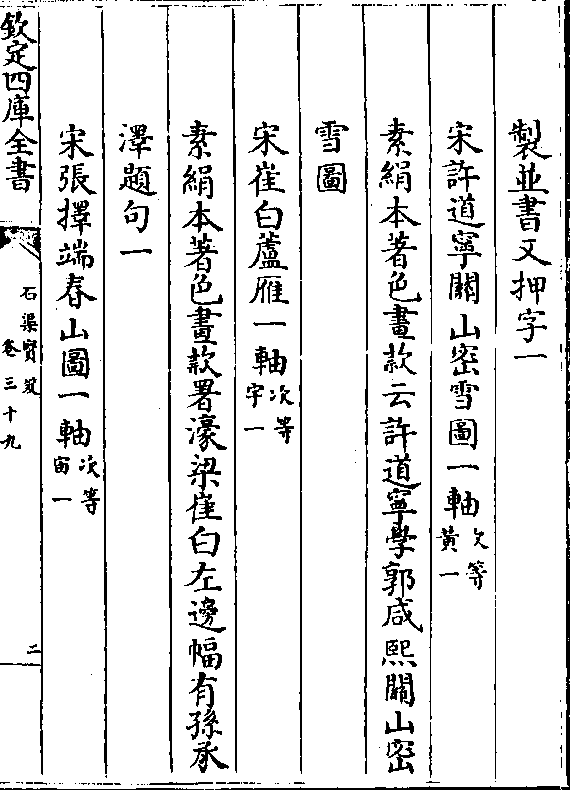 製並書又押字一
宋許道寧關山密雪圖一軸次等黃一
素絹本著色畫款云許道寧學郭咸熙關山密
雪圖
宋崔白蘆雁一軸次等宇一
素絹本著色畫款署濠梁崔白左邊幅有孫承
澤題句一
宋張擇端春山圖一軸次等宙一
欽定四庫全書
石渠寶笈
卷三十九
二